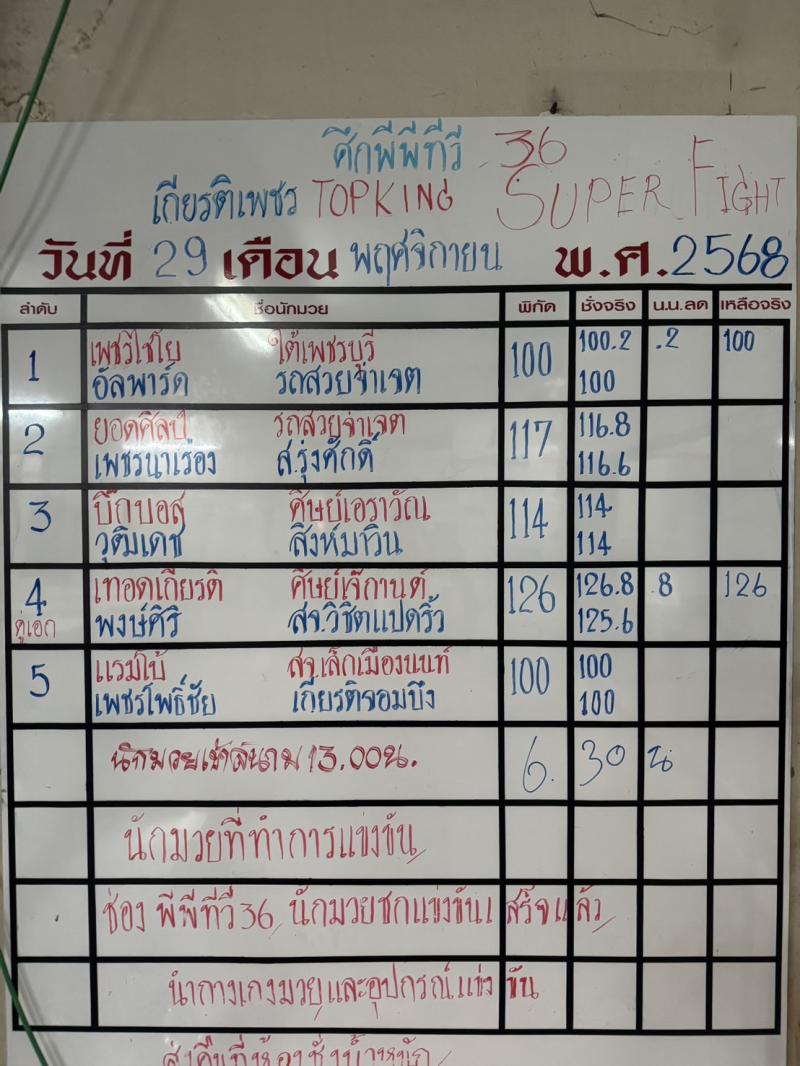 ศึกพีพีทีวี 36
เกียรติเพชร TOPKING SUPER FIGHT
วันที่ 29 เดือน พฤศจิกายน พ.ศ. 2568
ลำดับ ชื่อนักมวย พิกัด ชั่งจริง น.น.ลด เหลือจริง
1 เพชรไชโย ใต้เพชรบุรี 100 100.2 .2 100
อัลพาร์ด รถสวยจ่าเจต 100
2 ยอดศิลป์ รถสวยจ่าเจต 117 116.8
เพชรนาเรือง ส.รุ่งศักดิ์ 116.6
3 บิ๊กบอส ศิษย์เอราวัณ 114 114
วุฒิเดช สิงห์มาวิน 114
4 เทอดเกียรติ ศิษย์เจ๊กานต์ 126 126.8 .8 126
คู่เอก พงษ์ศิริ สจ.วิชิตแปดริ้ว 125.6
5 แรมโบ้ สจ.เล็กเมืองนนท์ 100 100
เพชรโพธิ์ชัย เกียรติจอมบึง 100
นักมวยเข้าสนาม 13.00น. 6.30 น
นักมวยที่ทำการแข่งขัน
ช่อง พีพีทีวี 36 นักมวยชกแข่งขันเสร็จแล้ว
นำกางเกงมวยและอุปกรณ์แข่งขัน
ส่งคืนที่ห้องชั่งน้ำหนัก